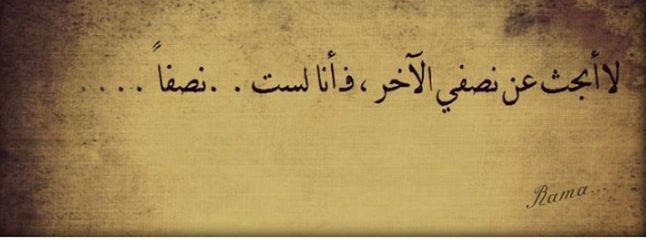 لا أبحث عن نصفي الآخر ، فـ أنا لست . . نصفاً . . . .
Rama...